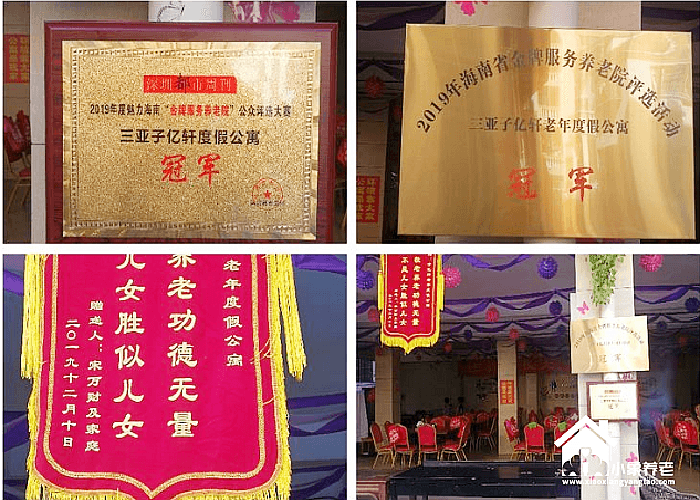 深圳都市周刊
2019年度魅力海南“金牌服务养老院”公众评选大赛
三亚子亿轩度假公寓
冠军
2019年海南省金牌服务养老院评选活动
三亚子亿轩老年度假公寓
冠军
老年度假公寓
养老功德无量
儿女胜似儿女
赠送人：宋万财及家庭
二〇一九十二月十日
2019年海南省金牌服务养老院评选活动
冠军
冠军
小象养老
www.xiaoxiangyanglao.com